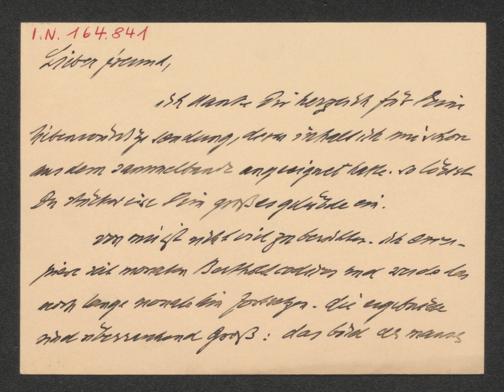 I.N. 164.841
Lieber freund,
ich danke Dir herzlich für Deine
liebenswürdige sendung, deren inhalt ich mir schon
aus dem sammelbande angeeignet hatte. so löst
Du stückweise Dein großes gelübde ein.
von mir ist nicht viel zu berichten. ich
seit monaten und werde das
noch lange monate hin fortsetzen. die ergebnisse
sind überraschend groß: das bild des mannes